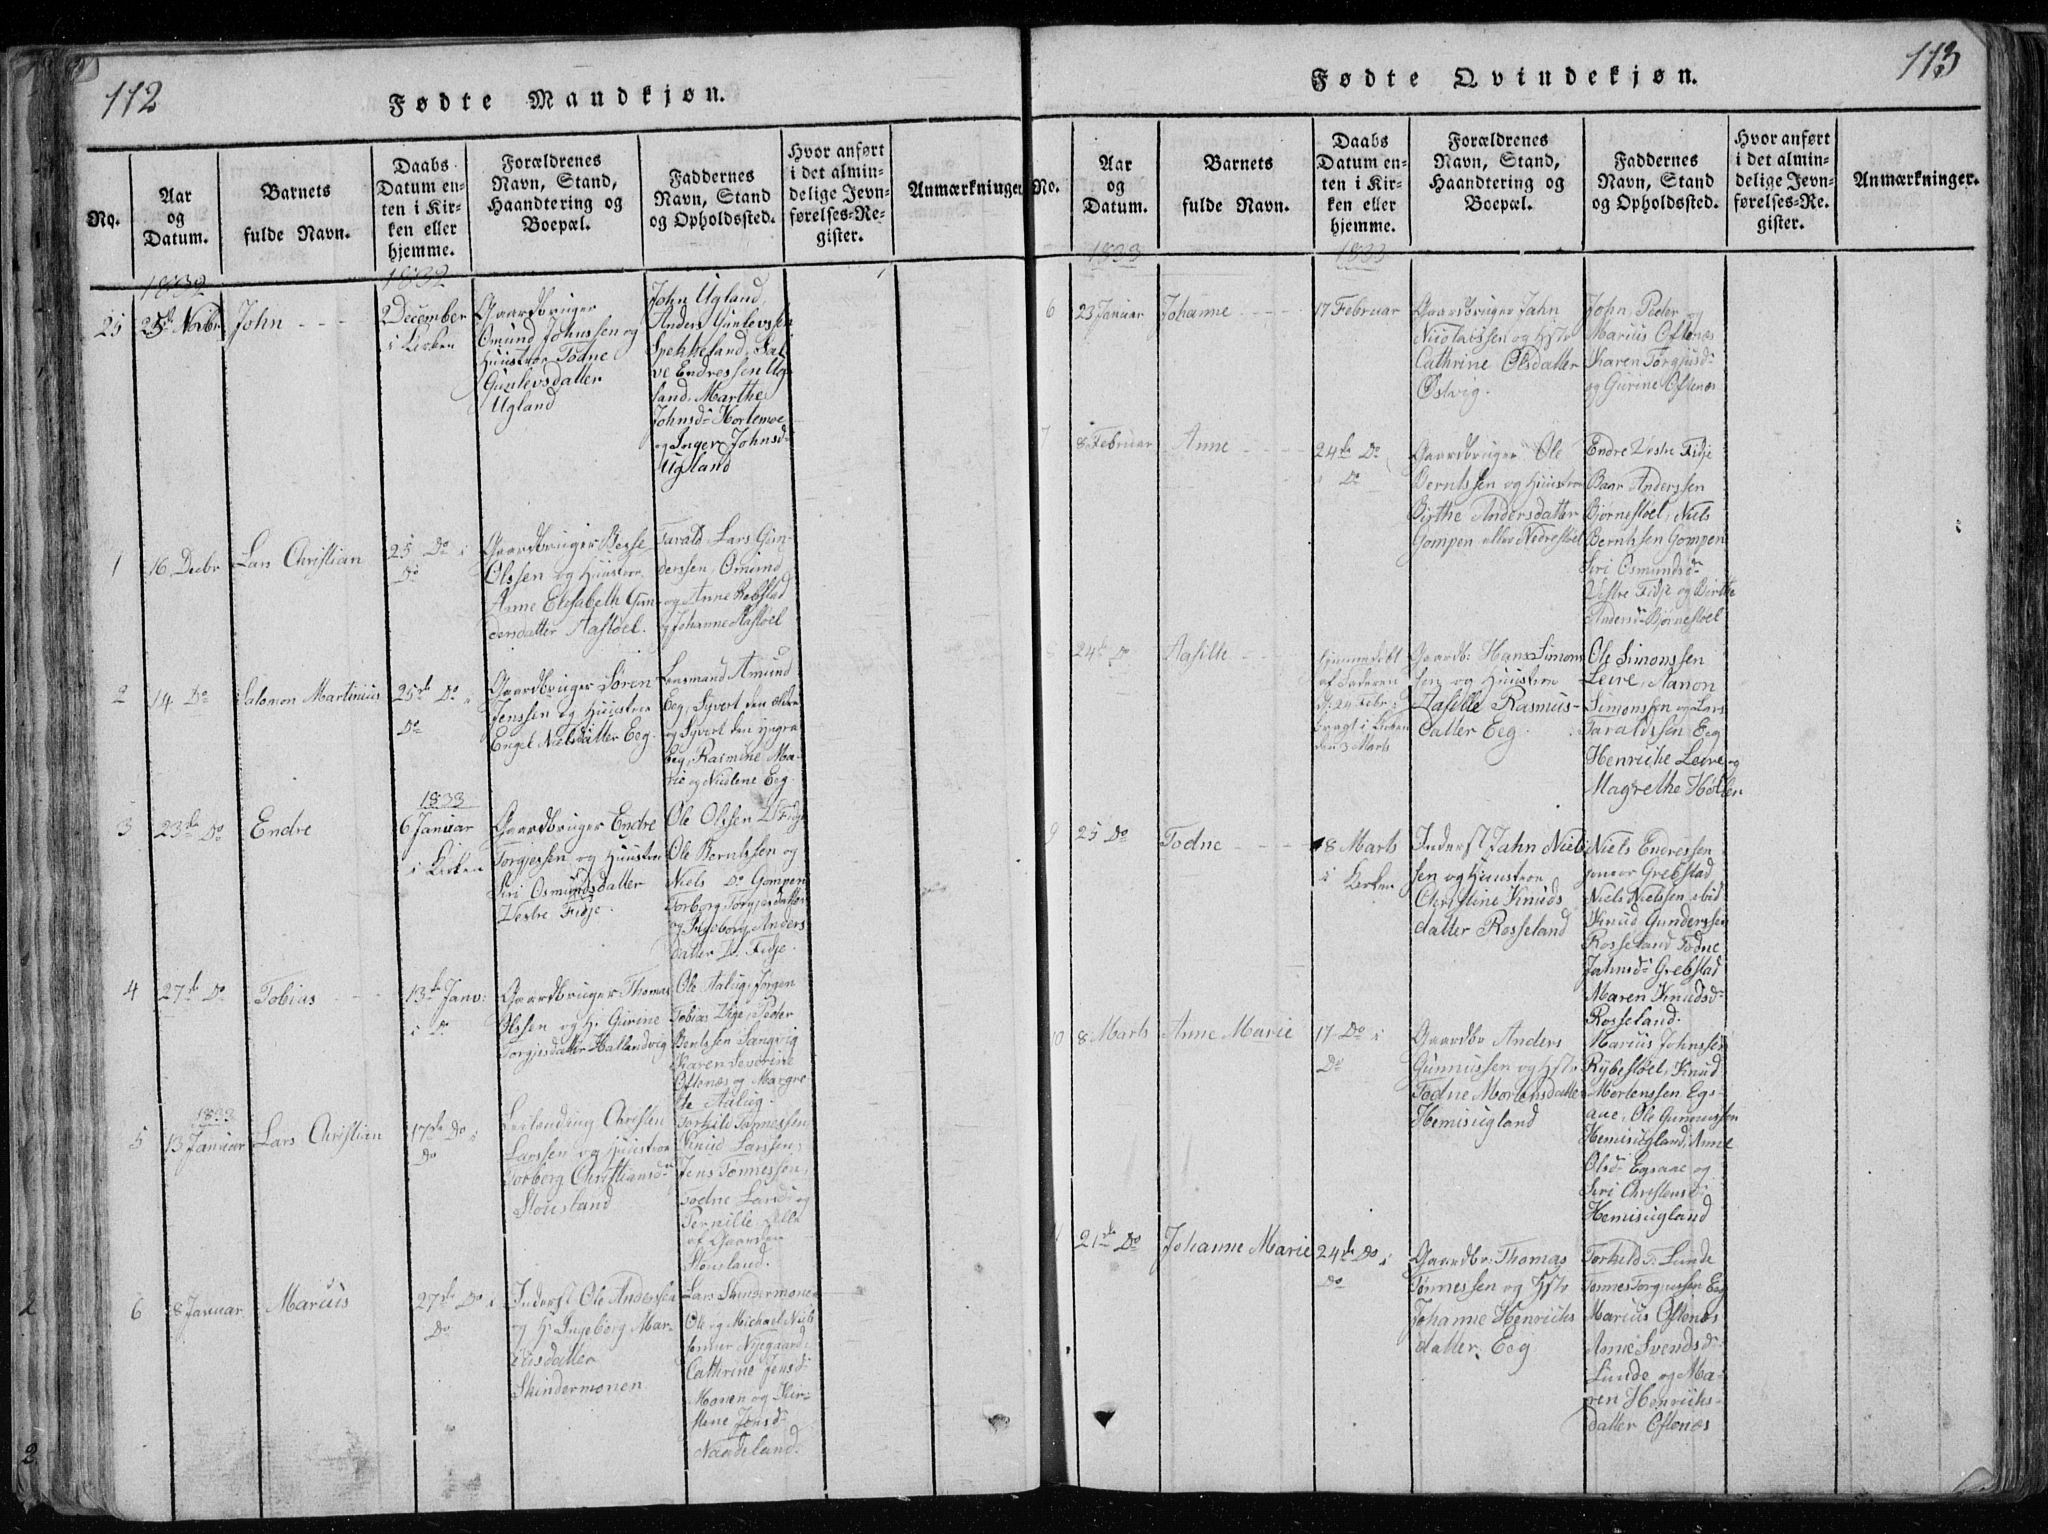 112
Fødte Mandkjøn.
No.
Aar
og
Datum.
Barnets
fulde Navn.
Daabs
Datum en-
ten i Kir-
ken eller
hjemme.
Forældrenes
Navn, Stand,
Haandtering og
Boepæl.
Faddernes
Navn, Stand
og Opholdssted.
Hvor anført
i det almin-
delige Jevn-
førelses-Re-
gister.
Anmærkninger
1832
1832
25
25de Novbr
John
2 December
i Kirken
Gaardbruger
Omund Johnssen og
Huustroe Todne
Gunlevsdatter
Ugland
John Ugland,
Anders Gunlevssen
Spekkeland, Sal-
ve Endressen Ug-
land, Marthe
Johnsd. Hortemoe
og Inger Johnsd.
Ugland
1
16 Decbr
Lars Christian
25 Do i
Do
Gaardbruger
Olssen og Huustroe
Anne Elisabeth Gun-
dersdatter Aastøel.
Tarald, Lars Gun-
derssen, Omund
og Anne Rebstad
og Johanne Aastøel
2
14 Do
Salomon Martinius
25de Do i
Do
Gaardbruger Søren
Jenssen og Huustroe
Engel Nielsdatter Eeg.
Lensmand Amund
Eeg, Syvert den ældre
og Syvert den yngre
Eeg, Rasmine Ma-
rie og Nielene Eeg.
3
23de Do
Endre
1833
6 Januar
i Kirken
Gaardbruger Endre
Torgjessen og Huustroe
Siri Osmundsdatter
Vestre Fidje.
Ole Olssen V. Fidje
Ole Berntssen og
Niels Do Gompen
Torborg Torgjesdatter
og Ingeborg Anders
datter V. Fidje.
4
27de Do
Tobias
13de Janv:
i Do
Gaardbruger Thomas
Olssen og H. Gurine
Torgjesdatter Hallandvig
Ole Aalug, Jørgen
Tobias Vige, Peder
Bentssen Sangvig
Karen Severine
Oftenæs og Margre-
te Aalug.
5
1833
13 Januar
Lars Christian
17de Do i
Do
Leilænding Christen
Larssen og Huustroe
Torborg Christiansd.
Stousland
Torkild Tønnessen
Knud Larssen,
Jens Tønnessen,
Todne Larsd. og
Pernille, alle
af Gaarden
Stousland.
6
8 Januar
Marcus
27de Do i
Do
Inderst Ole Anderssen
og H. Ingeborg Mar-
cusdatter
Skindermonen
Lars Skindermonen
Ole og Michael Niels
sønner Nygaard,
Cathrine Jensd.
Monen og Kir-
stine Jonsd.
Naadeland.
113
Fødte Qvindekjøn.
No.
Aar
og
Datum.
Barnets
fulde Navn.
Daabs
Datum en-
ten i Kir-
ken eller
hjemme.
Forældrenes
Navn, Stand,
Haandtering og
Boepæl.
Faddernes
Navn, Stand
og Opholdssted.
Hvor anført
i det almin-
delige Jevn-
førelses-Re-
gister.
Anmærkninger.
1833
1833
6
23 Januar
Johanne
17 Februar
Gaardbruger Jahn
Nicolaissen og Hstr
Cathrine Olsdatter
Østvig.
John, Peder og
Marius Oftenæs
Karen Torgjusd.
og Gurine Oftenæs
7
8 Februar
Anne
24de Do
i Do
Gaardbruger Ole
Berntssen og Huustroe
Birthe Andersdatter
Gompen eller Nedrestøel
Endre Vestre Fidje
Baar Anderssen
Bjørnestøel, Niels
Berntssen Gompen
Siri Osmundsd.
Vestre Fidje og Birthe
Andersd. Bjørnestøel
24de Do
Aasille
hjemmedøbt
af Faderen
d: 24 Febr:
bragt i Kirken
den 3 Marts
Gaardb: Hans Simons
sen og Huustroe
Aasille Rasmus-
datter Eeg.
Ole Simonssen
Leire, Aanon
Simonssen og Lars
Taraldssen Eeg
Henriche Leire og
Magrethe Holen
9
25 Do
Todne
8 Marts
i Kirken
Inderst Jahn Niels
sen og Huustroe
Christine Knuds
datter Rosseland
Niels Endressen
junior Grebstad
Niels Nielssen ibid
Knud Gunderssen
Rosseland Todne
Jahnsd. Grebstad
Maren Knudsd.
Rosseland.
10
8 Marts
Anne Marie
17 Do i
Do
Gaardbr Anders
Gunnussen og Hstr
Todne Mortensdatter
Hemisugland
Marius Johnssen
Rybestøel, Knud
Mortenssen Egs-
aae, Ole Gunnussen
Hemisugland, Anne
Olsd. Egsaae og
Siri Christensd.
Hemisugland
21de Do
Johanne Marie
24de Do i
Do
Gaardbr: Thomas
Tønnessen og Hstr
Johanne Henrichs
datter Eeg
Torkild T. Lunde
Tønnes Torgjussen Eeg
Marius Oftenæs
Anne Svendsd.
Lunde og Ma-
ren Henrichs-
datter Oftenæs